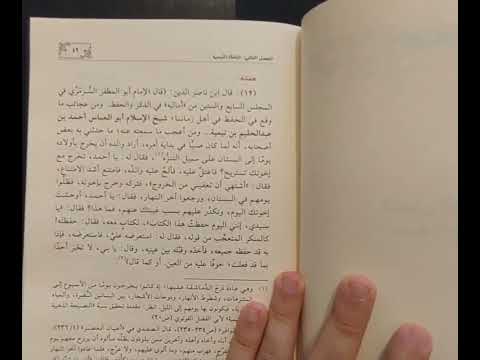 الفصل الثاني: النشأة التيمية
٤٩
همته
(١٢) قال ابن ناصر الدين: (قال الإمام أبو المظفر السُّرمَرِّي في
المجلس السابع والستين من «أماليه» في الذكر والحفظ: ومن عجائب ما
وقع في الحفظ في أهل زماننا: شيخ الإسلام أبو العباس أحمد بن
عبدالحليم بن تيمية. ومن أعجب ما سمعته عنه: ما حدثني به بعض
أصحابه، أنه لما كان صبيًّا في بداية أمره، أراد والده أن يخرج بأولاده
يومًا إلى البستان على سبيل التنزُّه(١)، فقال له: يا أحمد، تخرج مع
إخوتك تستريح؟ فاعتلَّ عليه، فألحَّ عليه والده، فامتنع أشدَّ الامتناع،
فقال: «أشتهي أن تعفيني من الخروج»، فتركه وخرج بإخوته، فظلُّوا
يومهم في البستان، ورجعوا آخر النهار، فقال: يا أحمد، أوحشت
إخوتك اليوم، وتكدَّر عليهم بسبب غيبتك عنهم، فما هذا؟ فقال: يا
سيدي، إنني اليوم حفظتُ هذا الكتاب، لكتاب معه، فقال: حفظته!
كالمنكر المتعجِّب من قوله، فقال له: استعرضه عليَّ، فاستعرضه،
به قد حفظه جميعه، فأخذه وقبَّله بين عينيه، وقال: يا بني، لا تخبر أحدًا
بما قد فعلت؛ خوفًا عليه من العين. أو كما قال)(٢).
(١) وهي عادة درج الدِّماشقة عليها؛ إذ كانوا يخرجون يومًا من الأسبوع إلى
المتنزهات، وشطوط الأنهار، ودوحات الأشجار، بين البساتين النَّضِرة، والمياه